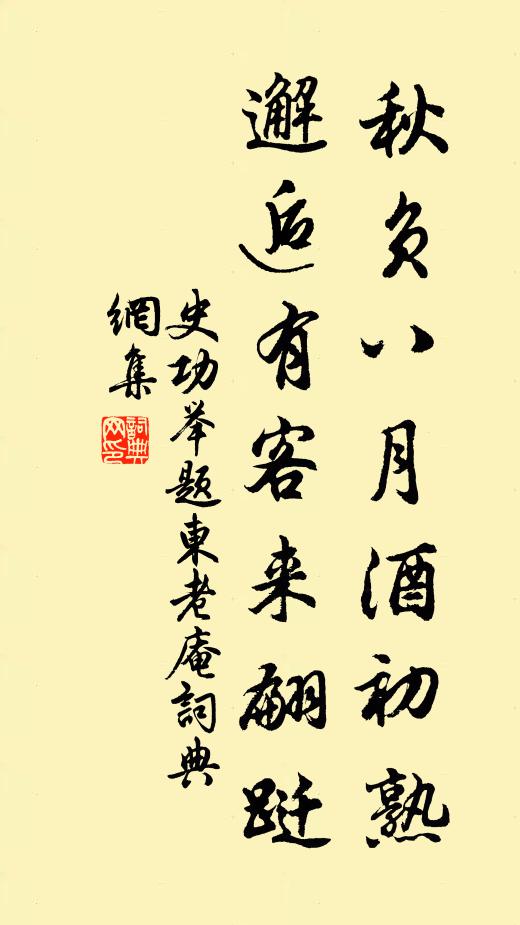 秋负八月酒初熟
邂逅有客来翩跹
史功举題東老庵詞典
網集
詞典
网印